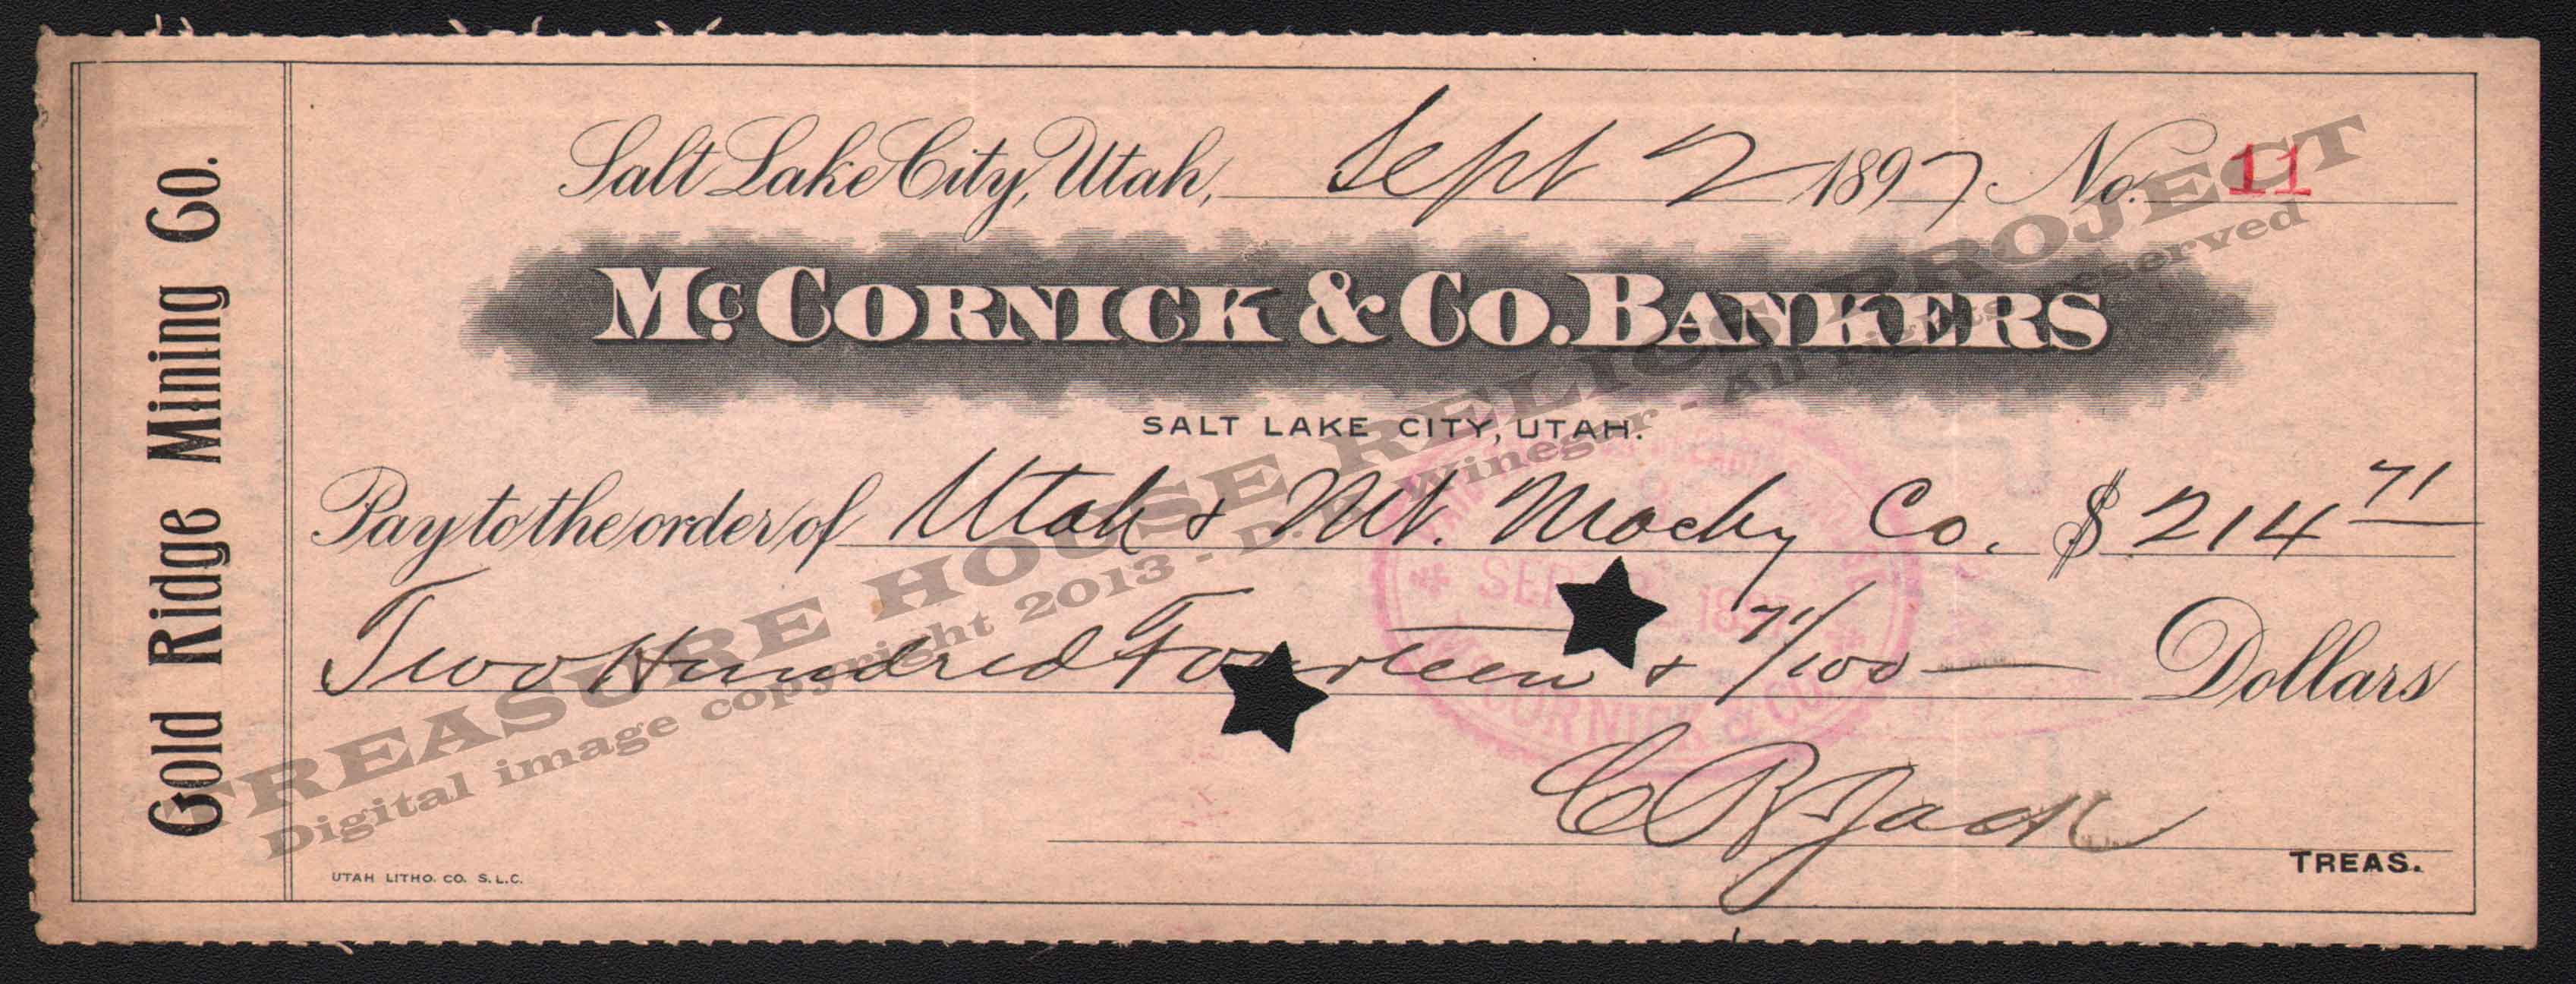 Gold Ridge Mining Co.
Salt Lake City, Utah, Sept 2 1897 No. 11
McCornick & Co. Bankers
SALT LAKE CITY, UTAH.
Pay to the order of Utah & Mt. Machy Co. $ 214 71
Two Hundred Fourteen & 71/100 Dollars
C R Jack
TREAS.
UTAH LITHO. CO. S.L.C.
SEP 2 1897
McCORNICK & CO.
TREASURE HOUSE RELICS PROJECT
Digital image copyright 2013 - D. Winegar - All rights reserved